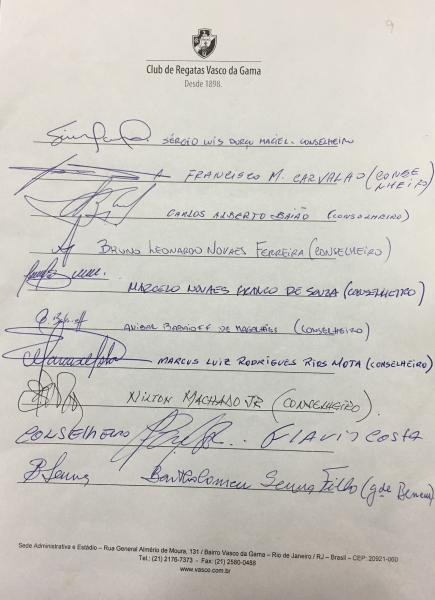 9
Club de Regatas Vasco da Gama
Desde 1898.
SÉRGIO LUIS DUQUE MACIEL - CONSELHEIRO
FRANCISCO M. CARVALHO (CONSE
NHEIRO)
CARLOS ALBERTO BAIÃO (CONSELHEIRO)
BRUNO LEONARDO NOVAES FERREIRA (CONSELHEIRO)
MARCELO NOVAES FRANCO DE SOUZA (CONSELHEIRO)
ANIBAL DE MAGALHÃES (CONSELHEIRO)
MARCUS LUIZ RODRIGUES RIOS MOTA (CONSELHEIRO)
NILTON MACHADO JR (CONSELHEIRO).
CONSELHEIRO FLAVIO COSTA
B Senna Bartholomeu Senna Filho (gde Benem)
Sede Administrativa e Estádio – Rua General Almério de Moura, 131 / Bairro Vasco da Gama – Rio de Janeiro / RJ – Brasil – CEP: 20921-060
Tel.: (21) 2176-7373 - Fax: (21) 2580-0488
www.vasco.com.br